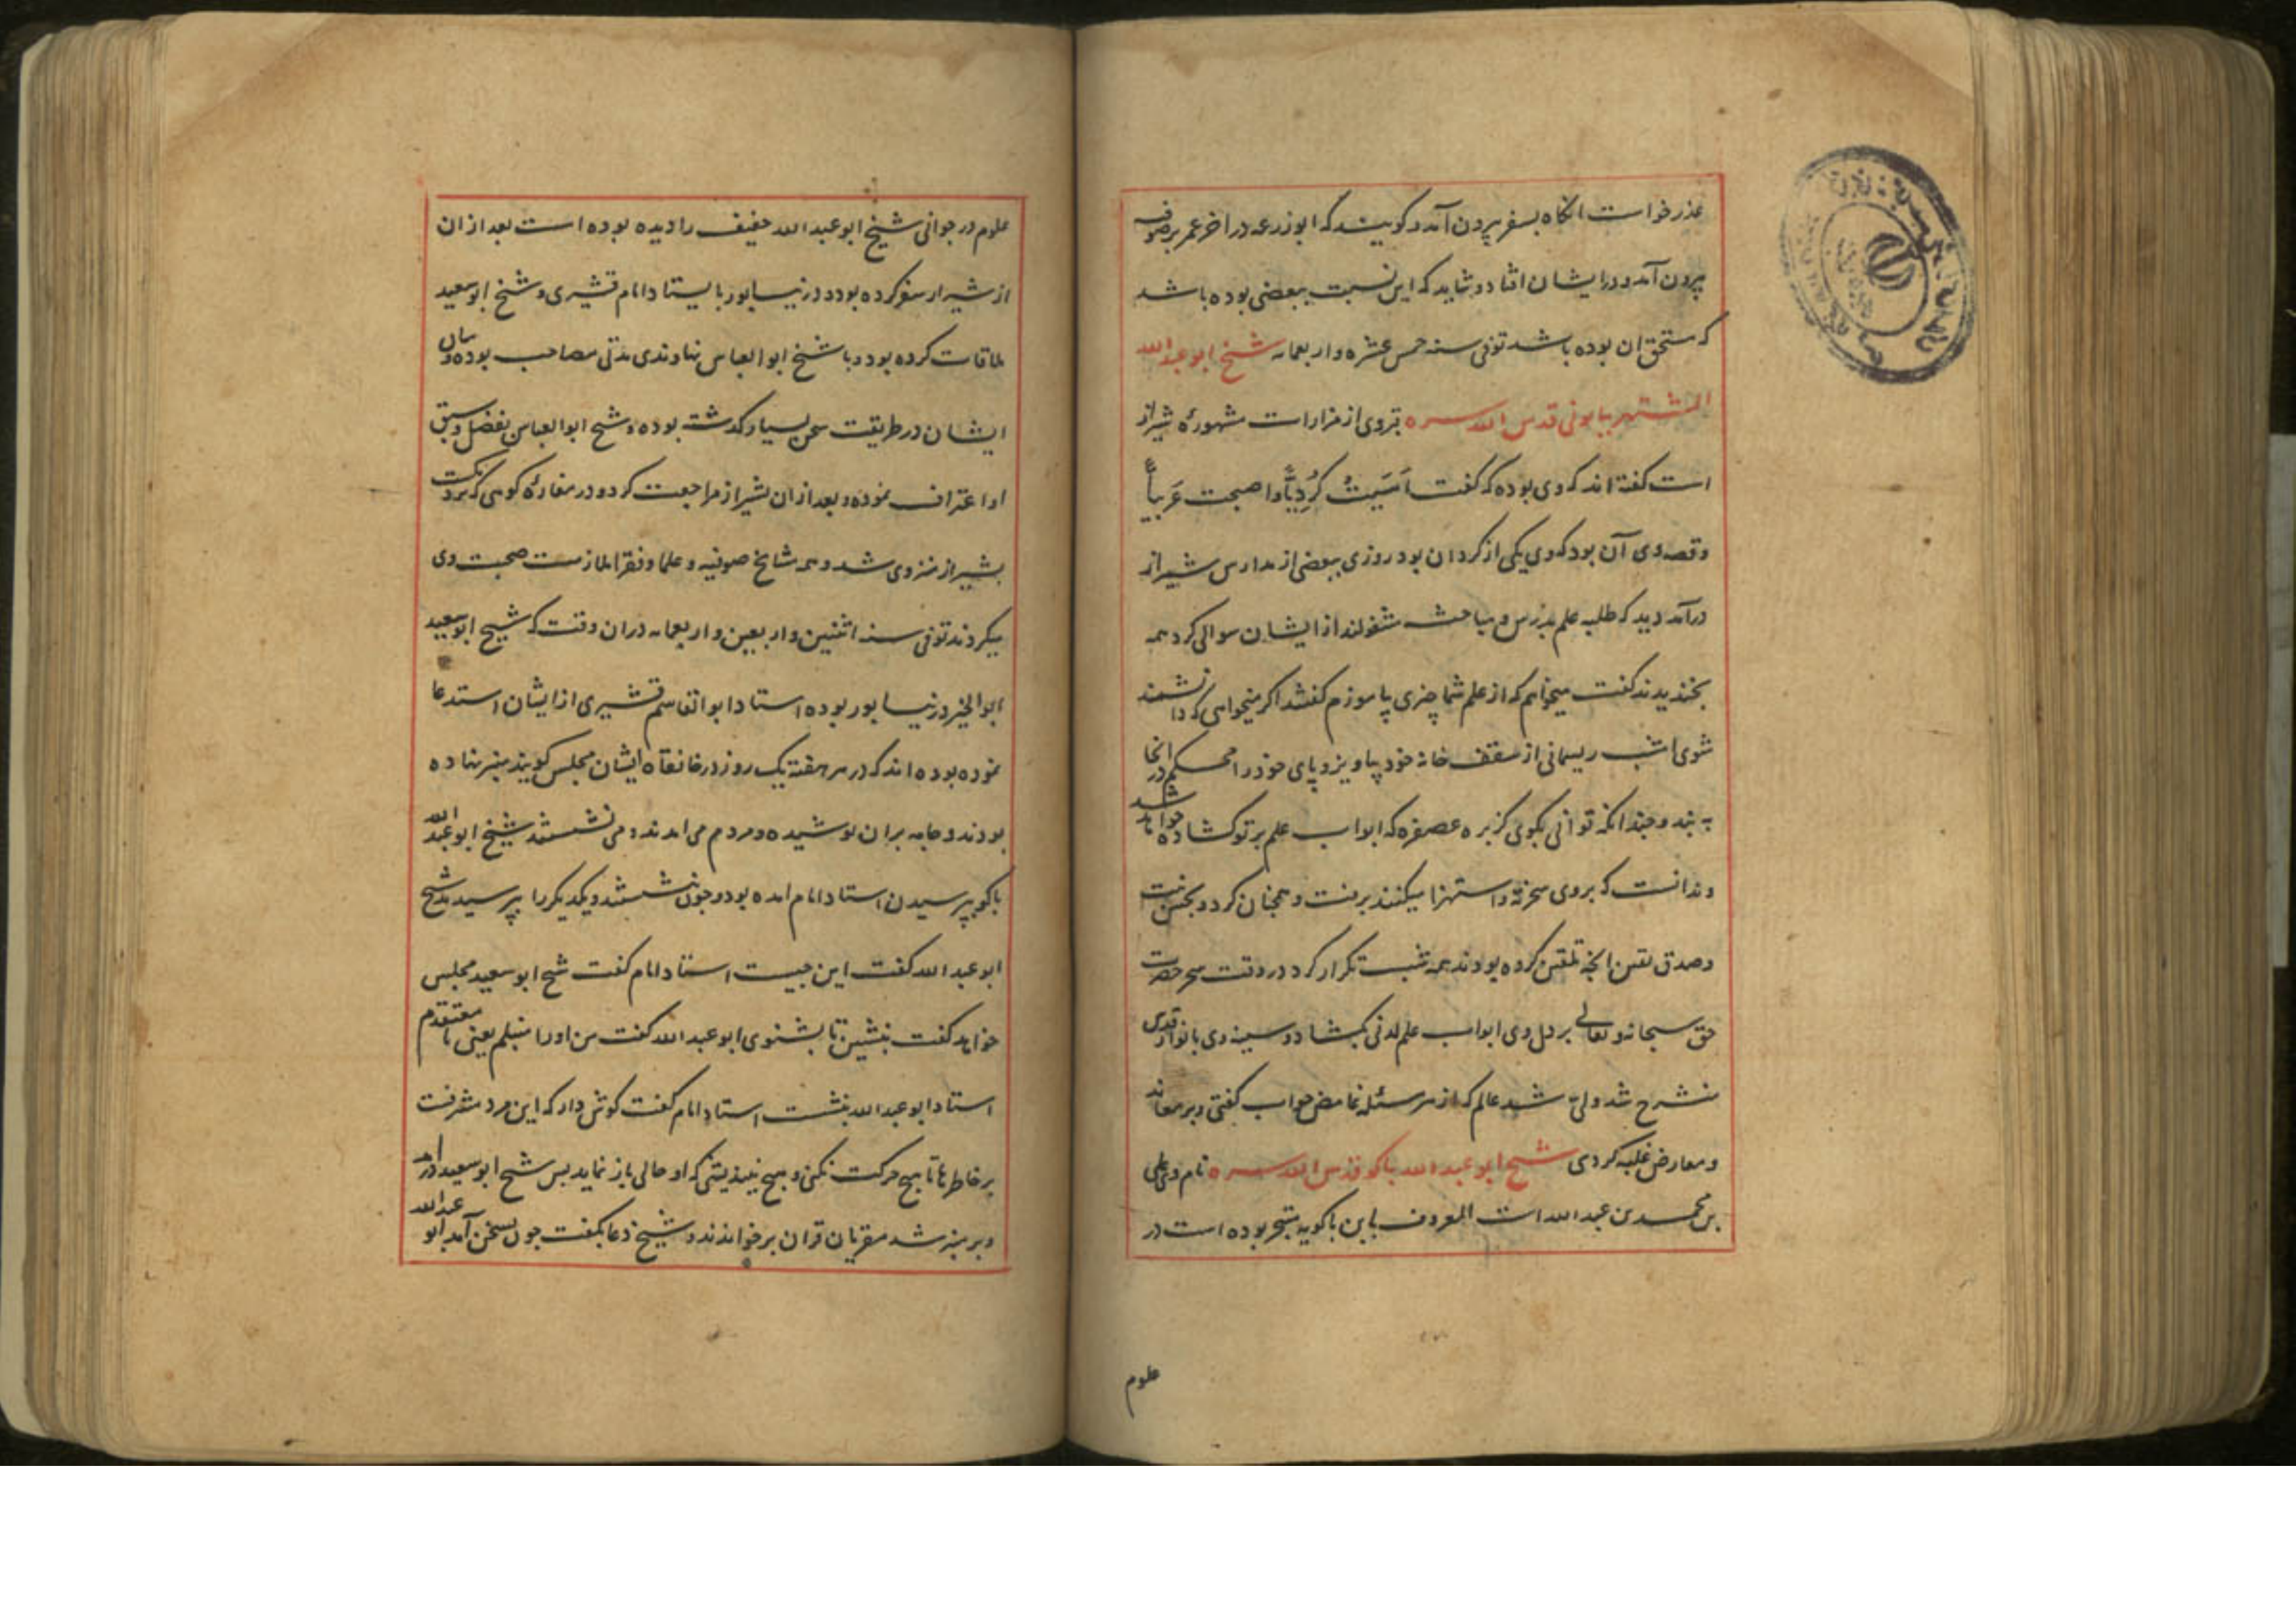 عذر خواست انکاه بسفر بیرون آمد و کویند که ابوزرعه در اخر عمر بر صوفیه
بیرون آمد و در ایشان افتاد و شاید که این نسبت ببعضی بوده باشد
که مستحق ان بوده باشد توفی سنه خمس عشره و اربعمایه شیخ ابو عبدالله
المشتهر ببابونی قدس الله سره قبر وی از مزارات مشهوره شیراز
است کفته اند که وی بوده که کفت اَمسَیتُ کُردِیّاً و اصبحت عَرَبیاً
و قصه وی آن بود که وی یکی از کردان بود روزی ببعضی از مدارس شیراز
درآمد دید که طلبه علم بدرس و مباحث مشغولند از ایشان سوالی کرد همه
بخندیدند کفت میخواهم که از علم شما چیزی بیاموزم کفتند اکر میخواهی که دانشمند
شوی امشب ریسمانی از سقف خانه خود بیاویز و پای خود را محکم در انجا
به بند و چندانکه توانی بکوی کزبره عصفره که ابواب علم بر تو کشاده خواهد شد
و ندانست که بر وی سخریه و استهزا میکنند برفت و همچنان کرد و بحسن نیت
و صدق یقین انچه تلقین کرده بودند همه شب تکرار کرد در وقت سحر حضرت
حق سبحانه و تعالی بر دل وی ابواب علم لدنی بکشاد و سینه وی بانوار قدس
منشرح شد ولی شد عالم که از هر مسئله غامض جواب کفتی و بر هر معاند
و معارض غلبه کردی شیخ ابو عبدالله باکو قدس الله سره نام وی علی
بن محمد بن عبدالله است المعروف بابن باکویه متبحر بوده است در
علوم
علوم در جوانی شیخ ابو عبدالله خفیف را دیده بوده است بعد از ان
از شیراز سفر کرده بود در نیسابور با استاد امام قشیری و شیخ ابوسعید
ملاقات کرده بود و با شیخ ابوالعباس نهاوندی مدتی مصاحب بوده و میان
ایشان در طریقت سخن بسیار کذشته بوده و شیخ ابوالعباس بفضل و سبق
او اعتراف نموده و بعد از ان بشیراز مراجعت کرد و در مغاره کوهی که نزدیکست
بشیراز منزوی شد و همه مشایخ صوفیه و علما و فقرا ملازمت صحبت وی
میکردند توفی سنه اثنین و اربعین و اربعمایه در ان وقت که شیخ ابوسعید
ابوالخیر در نیسابور بوده استاد ابوالقاسم قشیری از ایشان استدعا
نموده بوده اند که در هر هفته یک روز در خانقاه ایشان مجلس کویند منبر نهاده
بودند و جامه بران پوشیده و مردم می امدند و می نشستند شیخ ابو عبدالله
باکو بپرسیدن استاد امام امده بود و چون بنشستند و یکدیکر را بپرسیدند شیخ
ابو عبدالله کفت این چیست استاد امام کفت شیخ ابوسعید مجلس
خواهد کفت بنشین تا بشنوی ابو عبدالله کفت من او را منبلم یعنی نا معتقدم
استاد ابو عبدالله بنشست استاد امام کفت کوش دار که این مرد مشرفست
بر خاطرها تا هیچ حرکت نکنی و هیچ نیندیشی که او حالی باز نماید پس شیخ ابوسعید درآمد
و بر منبر شد مقریان قران برخواندند و شیخ دعا بکفت چون بسخن آمد ابو عبدالله